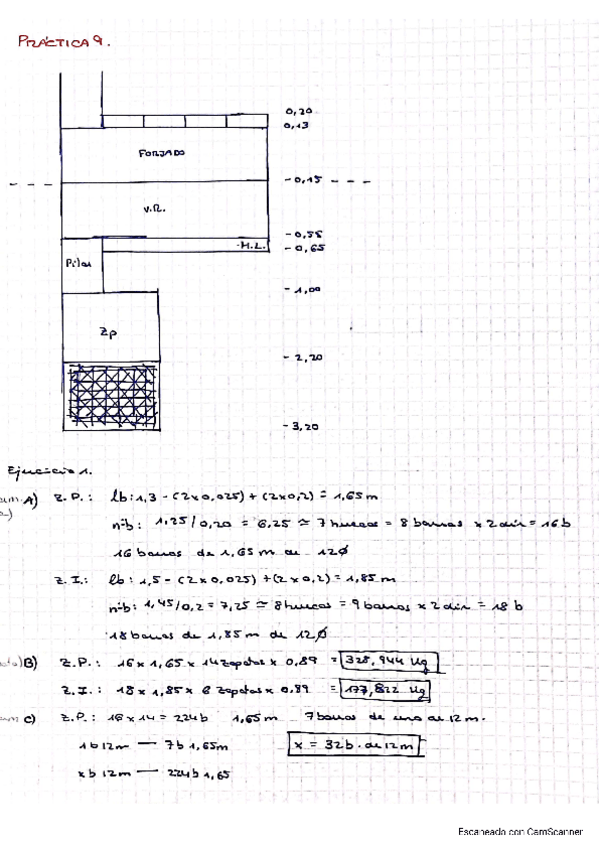 PRÁCTICA 9.
0,20
0,13
FORJADO
-0,15
V.R.
-0,55
H.L.
-0,65
Pilar
-1,00
Zp
-2,20
-3,20
Ejercicio 1.
A) Z.P.: lb: 1,3 - (2x0,025) + (2x0,2) = 1,65 m
nºb: 1,25/0,20 = 6,25 ≃ 7 huecos = 8 barras x 2 dir = 16 b
16 barras de 1,65 m de 12Ø
Z.I.: lb: 1,5 - (2x0,025) + (2x0,2) = 1,85 m
nºb: 1,45/0,2 = 7,25 ≃ 8 huecos = 9 barras x 2 dir = 18 b
18 barras de 1,85 m de 12Ø
B) Z.P.: 16 x 1,65 x 14 zapatas x 0,89 = 328,944 Kg
Z.I.: 18 x 1,85 x 6 zapatas x 0,89 = 177,822 Kg
C) Z.P.: 16 x 14 = 224 b 1,65 m 7 barras de una de 12 m.
1 b 12 m — 7 b 1,65 m x = 32 b. de 12 m
x b 12 m — 224 b 1,65
Escaneado con CamScanner